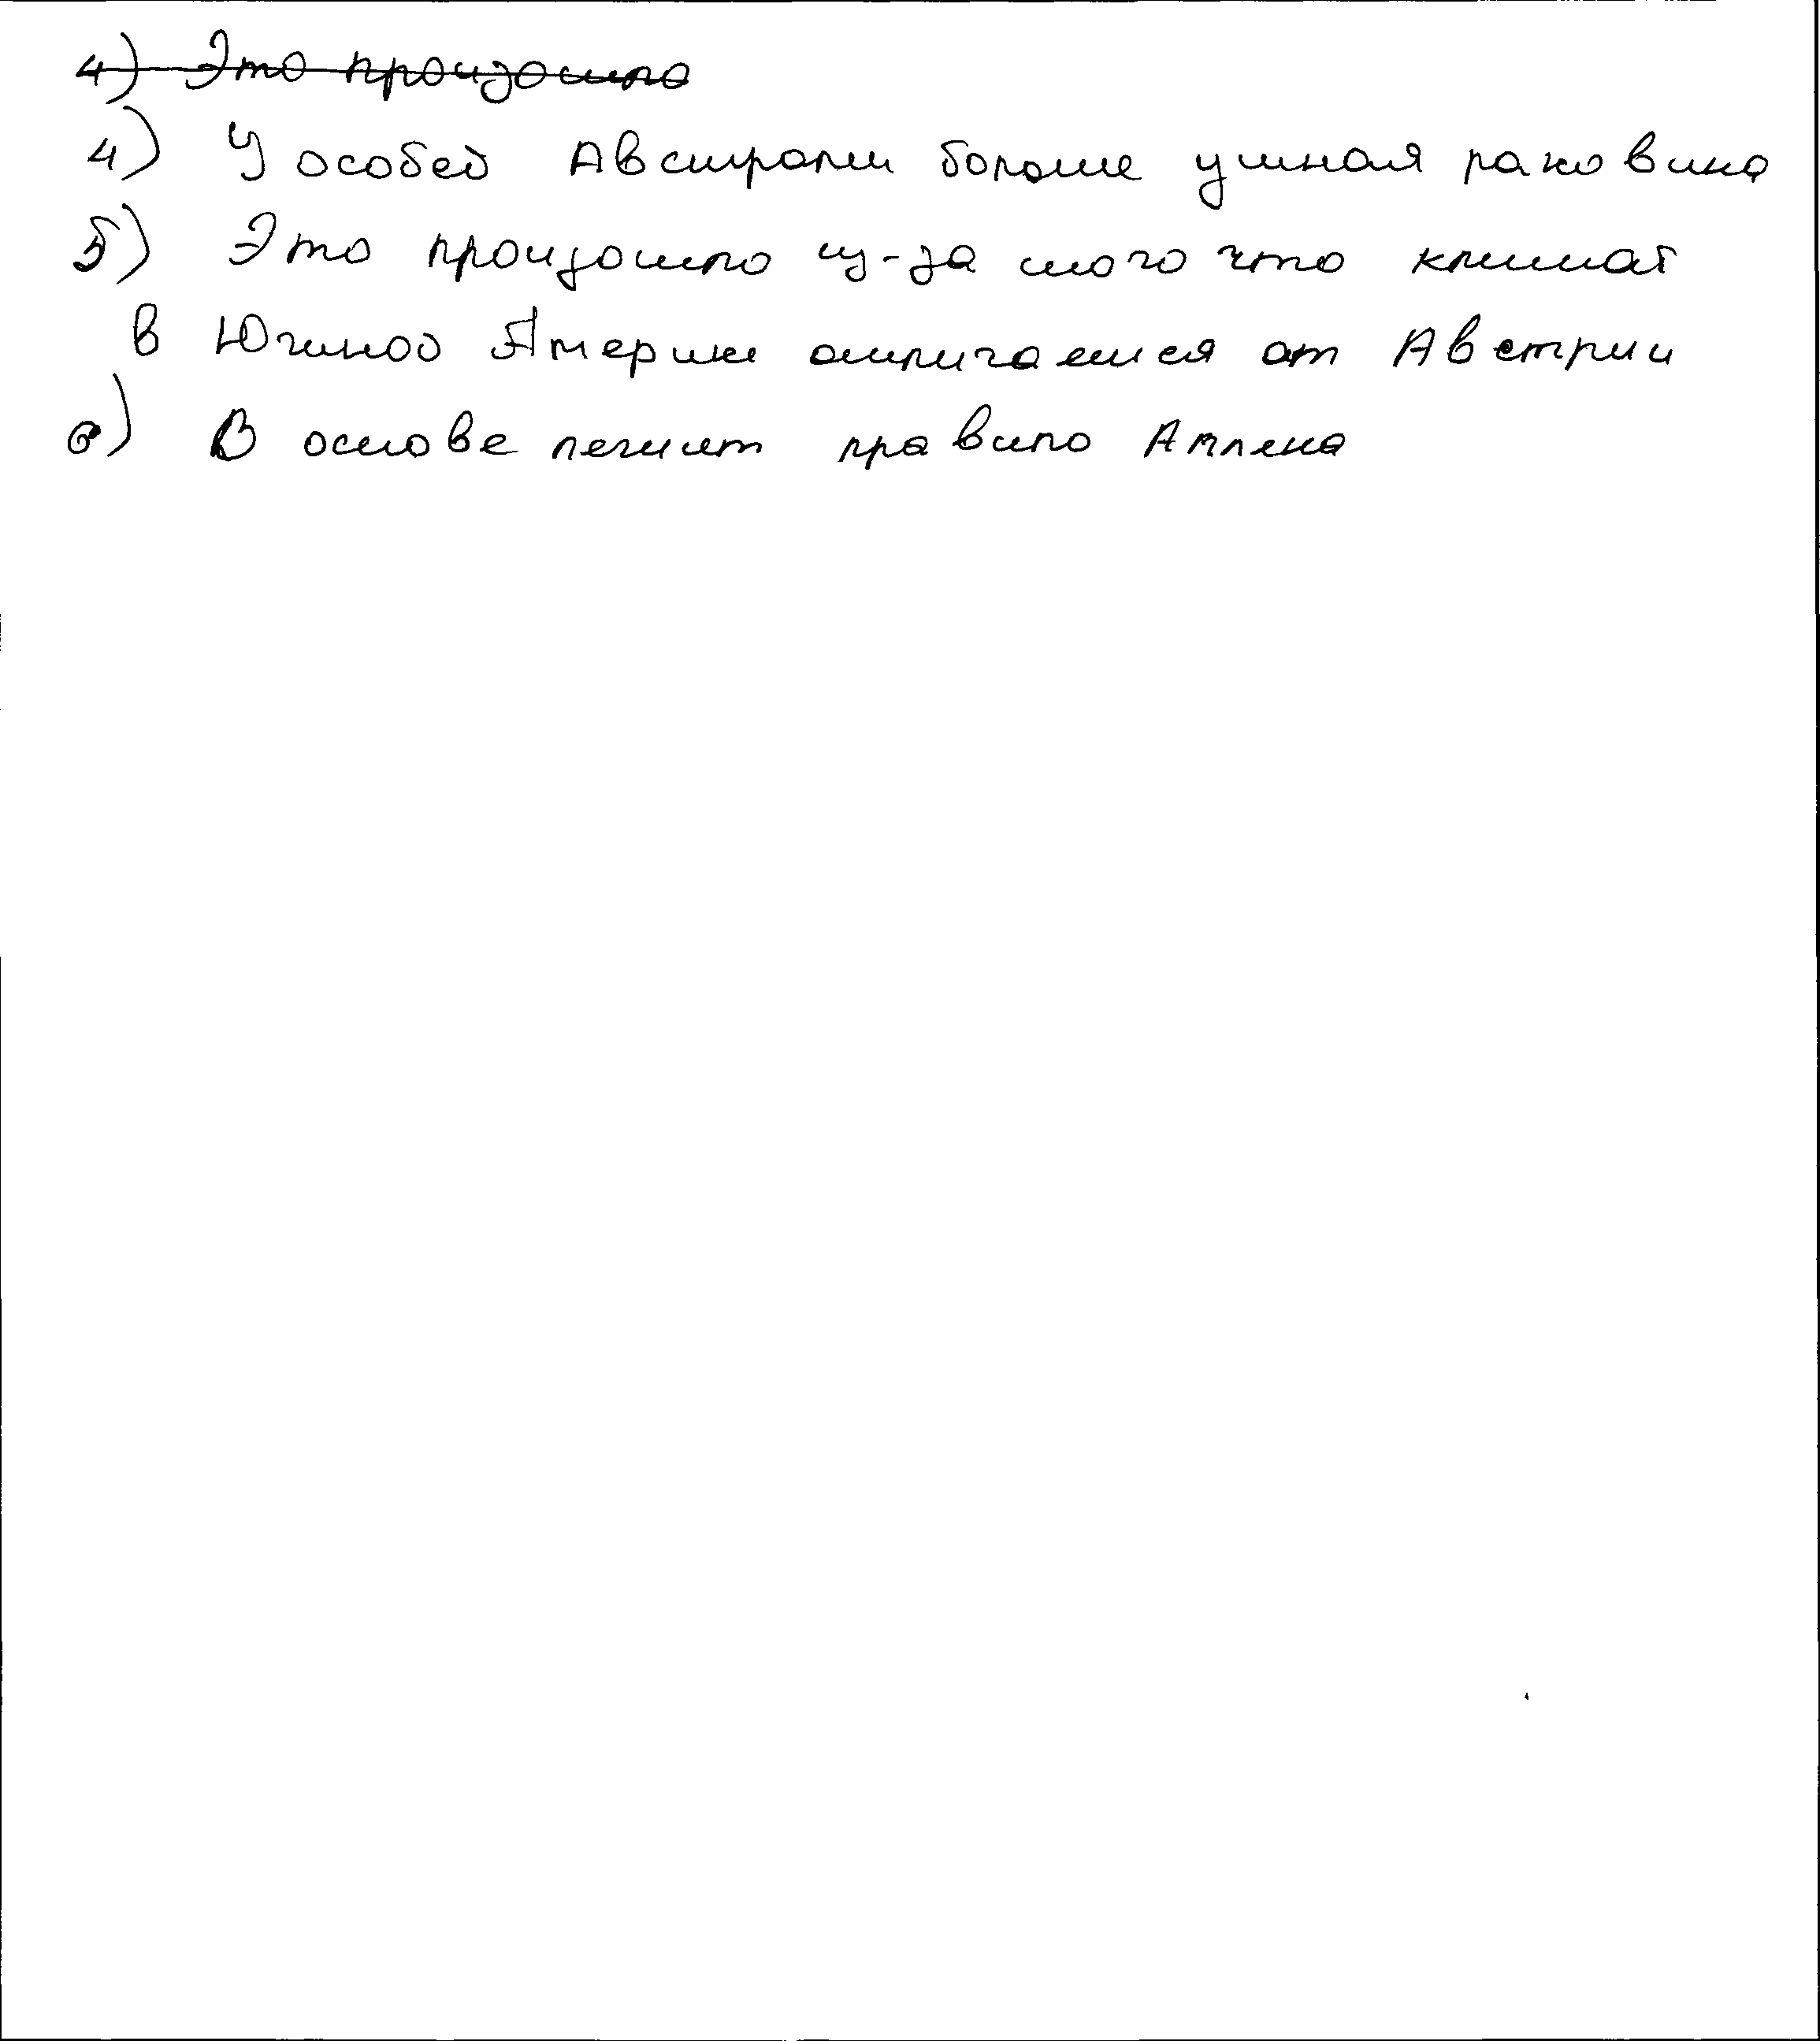 4) Это произошло
4) У особей Австралии больше ушная раковина
5) Это произошло из-за того что климат
в Южной Америки отличается от Австрии
6) В основе лежит правило Аллена